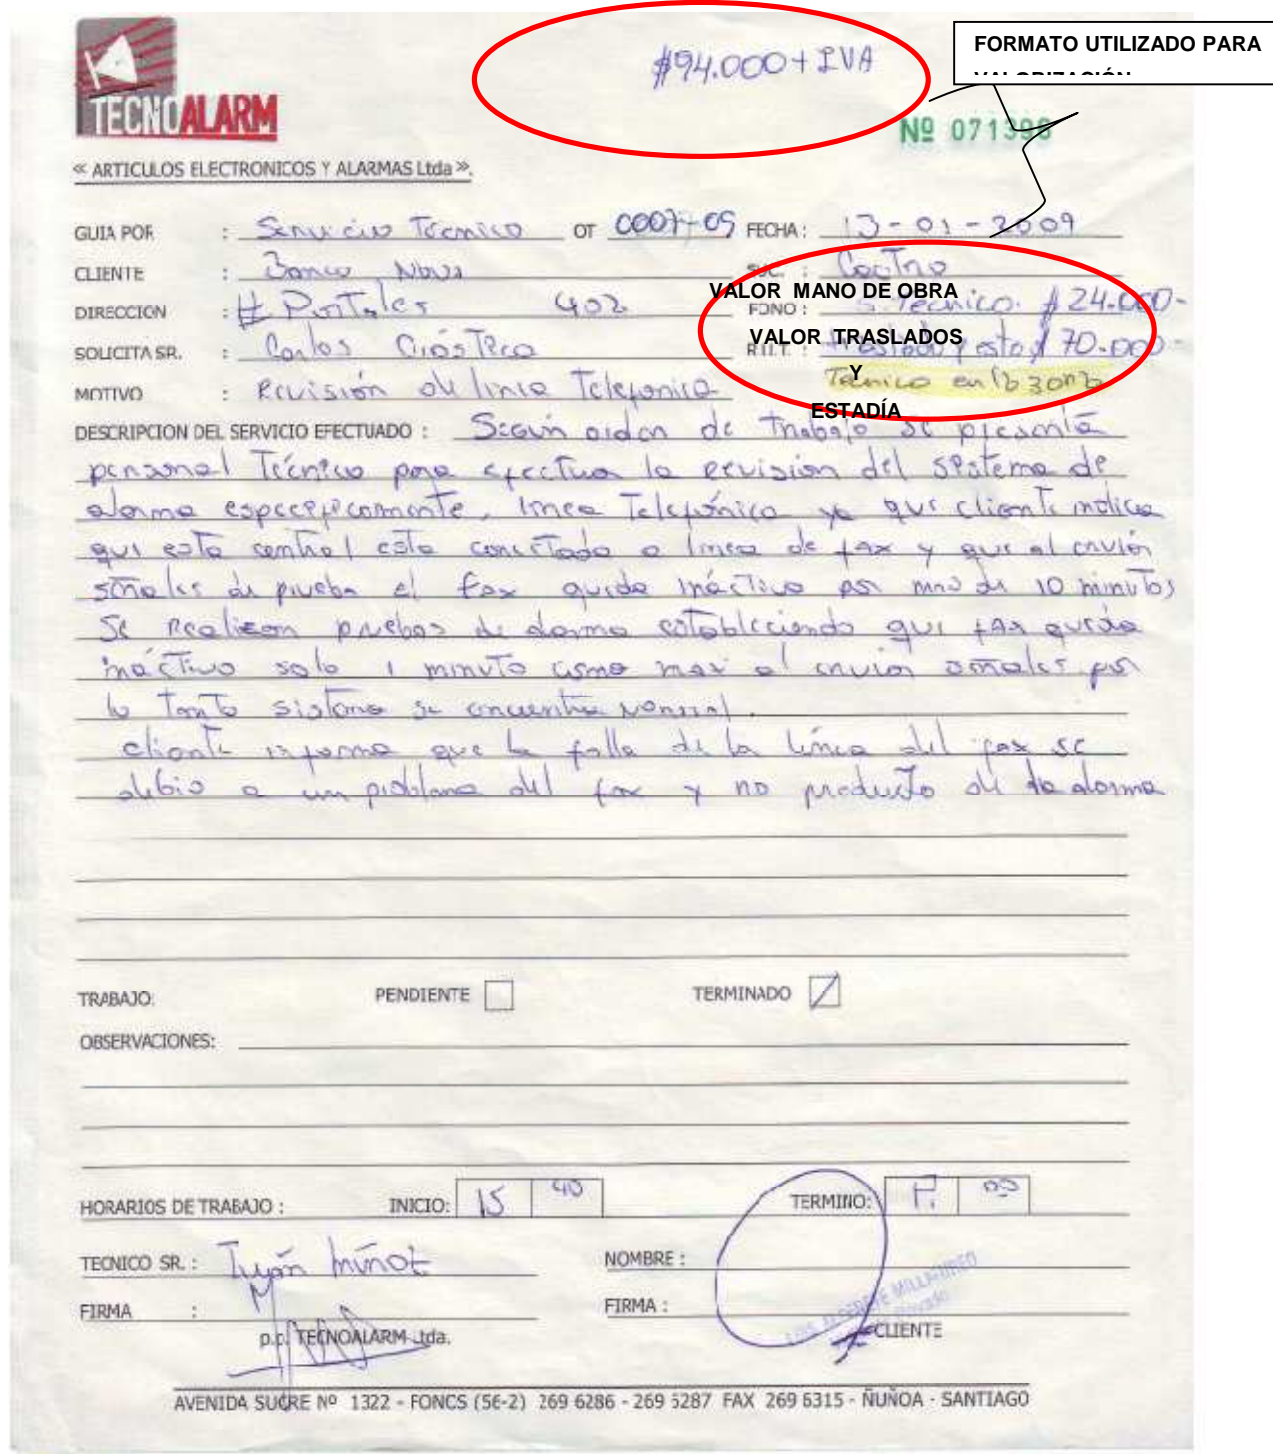 $94.000 + IVA
FORMATO UTILIZADO PARA
VALORIZACIÓN
TECNOALARM
Nº 071398
« ARTICULOS ELECTRONICOS Y ALARMAS Ltda ».
GUIA POR : Servicio Técnico OT 0007-09 FECHA: 13-01-2009
CLIENTE : Banco Nova SUC. : Castro
VALOR MANO DE OBRA
DIRECCION : # Portales 402 FONO : S. Tecnico. $24.000-
VALOR TRASLADOS
SOLICITA SR. : Carlos R.U.T. : Traslado y estad $70.000-
Y
MOTIVO : Revisión de linea Telefonica Técnico en la zona
ESTADÍA
DESCRIPCION DEL SERVICIO EFECTUADO : Según orden de Trabajo se presenta
personal Técnico para efectuar la revisión del sistema de
alarma especificamente, linea Telefónica ya que cliente indica
que esta central esta conectada a linea de fax y que al enviar
señales de prueba el fax quedaináctivo por mas de 10 minutos
Se realizan pruebas de alarma estableciendo que fax queda
ináctivo solo 1 minuto como max al enviar señales por
lo Tanto sistema se encuentra normal.
cliente informa que la falla de la linea del fax se
debio a un problema del fax y no producto de la alarma
TRABAJO: PENDIENTE TERMINADO
OBSERVACIONES:
HORARIOS DE TRABAJO : INICIO: 15 40 TERMINO: 17. 00
TECNICO SR. : Iván Múñoz NOMBRE :
FIRMA : FIRMA :
p.p. TECNOALARM Ltda. CLIENTE
AVENIDA SUCRE Nº 1322 - FONOS (56-2) 269 6286 - 269 6287 FAX 269 6315 - ÑUÑOA - SANTIAGO